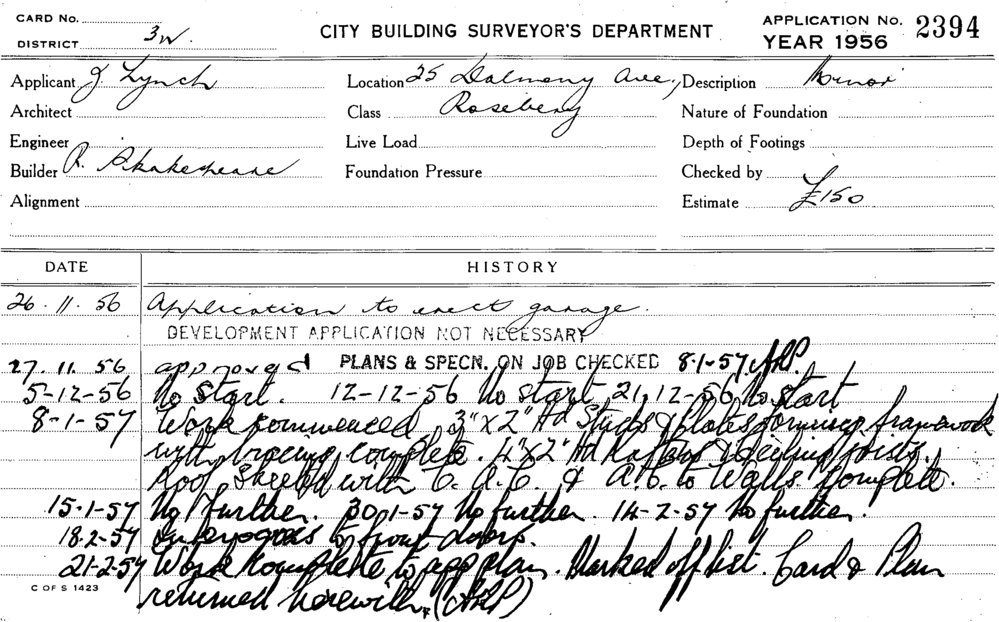 CARD No.
DISTRICT 3W.
CITY BUILDING SURVEYOR'S DEPARTMENT
APPLICATION No. 2394
YEAR 1956
Applicant J. Lynch
Location 25 Dalmeny Ave.,
Description Minor
Architect
Class Rosebery
Nature of Foundation
Engineer
Live Load
Depth of Footings
Builder R. Shakespeare
Foundation Pressure
Checked by
Alignment
Estimate £150
DATE HISTORY
26.11.56 Application to erect garage.
DEVELOPMENT APPLICATION NOT NECESSARY
27.11.56 approved PLANS & SPECN. ON JOB CHECKED 8-1-57.
5-12-56 No start. 12-12-56 No start 21.12.56 No start
8-1-57 Work commenced 3"x2" Hd Studs & plates forming framework
with bracing complete. 4"x2" Hd Rafters & Ceiling joists.
Roof Sheeted with C.A.C. & A.C. to Walls. Complete.
15-1-57 No Further. 30-1-57 No further. 14-2-57 No further.
18.2-57 to front doors.
21-2-57 Work Complete to app plan. Marked off list. Card & Plan
returned herewith.
C OF S 1423